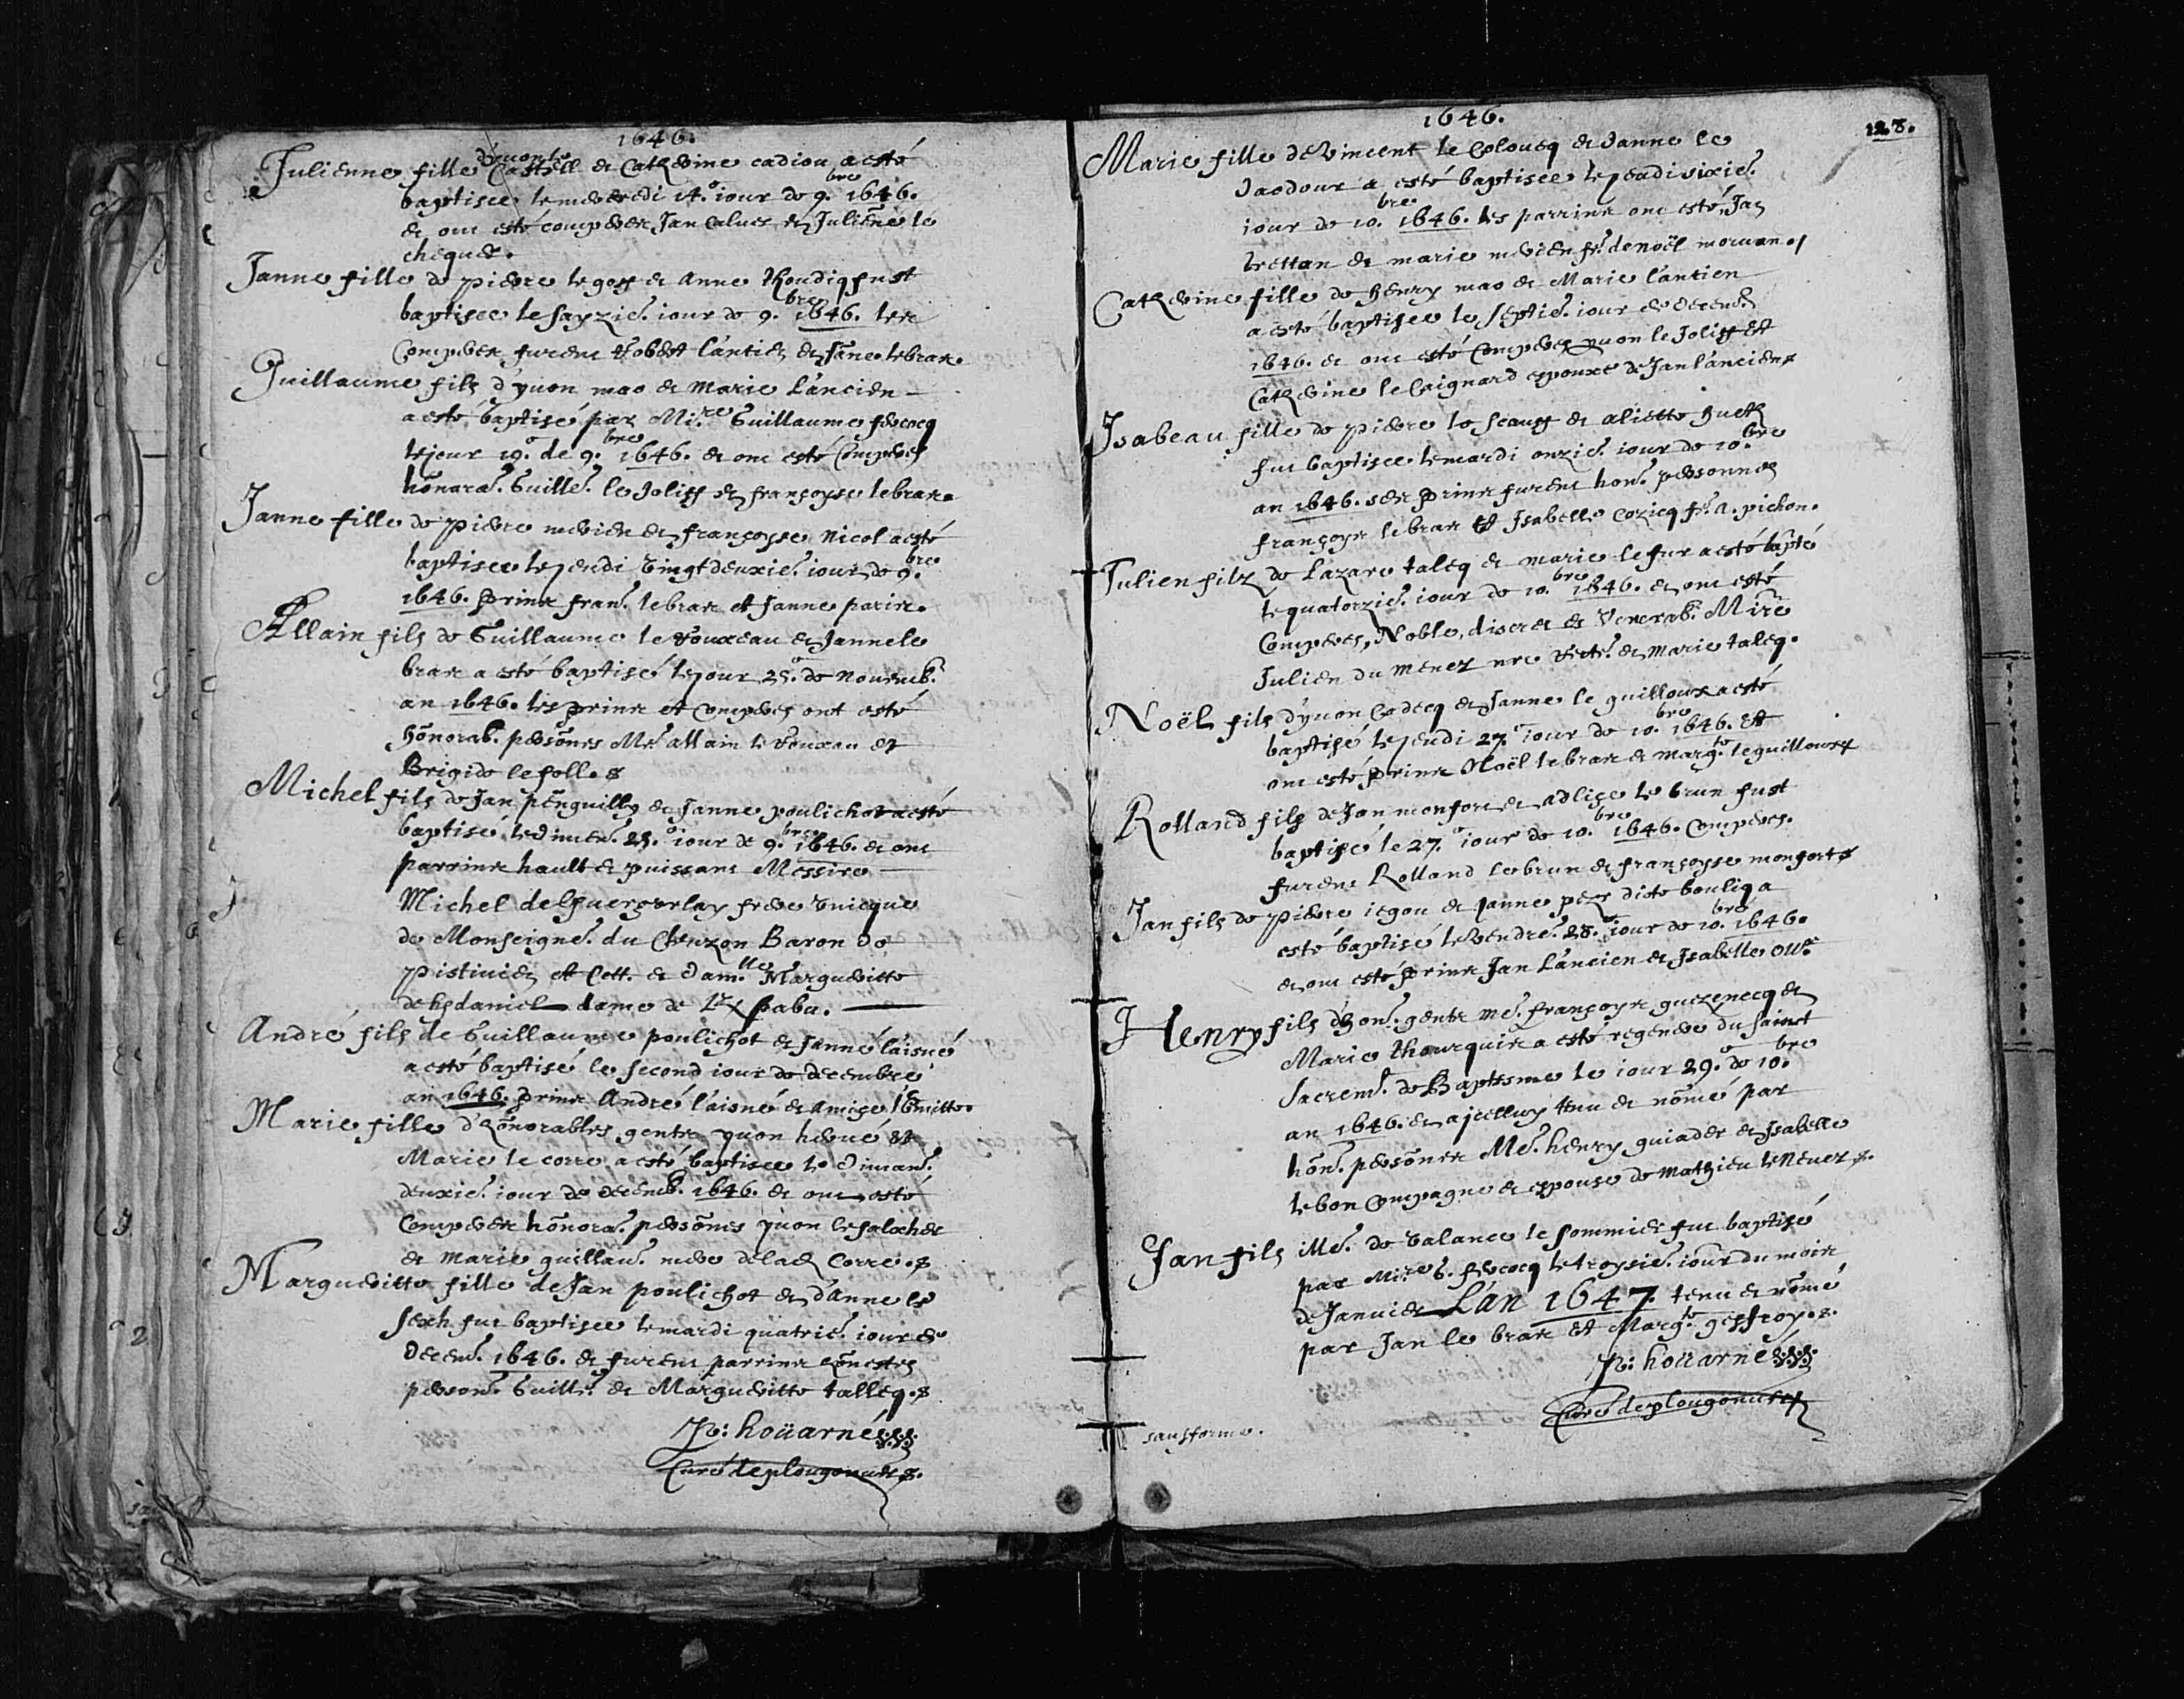 1646.
d'yuon le
Julienne fille Castell et Catherine cadiou a esté
baptisée le mercredi 14.° iour de 9.bre 1646.
et ont esté comperes Jan Caluez et Julienne le
chequer.
Janne fille de pierre le goff et Anne thoudiq fust
baptisee le sayzie. iour de 9.bre 1646. les
Comperes furent Robert l'antien et Jane le bras.
Guillaume fils d'yuon mao et Marie L'ancien
a esté baptisé par Mi.re Guillaume fercocq
le jour 19.° de 9.bre 1646. et ont esté Comperes
hōnora. Guille. le Joliff et françoyse le bras.
Janne fille de pierre merien et françoyse Nicol a esté
baptisee le jeudi vingt deuxie. iour de 9.bre
1646. prins fran. le bras et Janne paris.
Allain fils de Guillaume le rouxeau et Janne le
bras a esté baptisé le jour 25.° de Nouemb.
an 1646. les prins et Comperes ont esté
hōnorab. persōnes Me. allain le rouxeau et
Brigide le foll.
Michel fils de Jan pēnguilly et Janne poulichot a esté
baptisé le dimen. 25.° iour de 9.bre 1646. et ont
parrins hault et puissant Messire
Michel de Guergorlay frere vnicque
de Monseigne. du Cleuzon Baron de
pistiuien et Cett. et dam.lle Margueritte
de kerdaniel dame de Lez pabu.
André fils de Guillaume poulichot et Janne l'aisné
a esté baptisé le second iour de decembre
an 1646. prins André l'aisné et Amice l'Ermitte.
Marie fille d'hōnorables gents yuon herué et
Marie le corre a esté baptisee le diman.
deuxie. iour de decemb. 1646. et ont esté
Comperes hōnora. persōnes yuon le falocher
et Marie guillau. mere de lad. Corre.
Margueritte fille de Jan poulichot et d'anne le
serh fut baptisee le mardi quatrie. iour de
decem. 1646. et furent parrins hōnestes
person. Guill. et Margueritte tallecq.
P: hoüarné
Curé de plougonuer.
1646.
128.
Marie fille de Vincent le Coloucq et Janne le
Jaodour a esté baptisee le jeudi sixie.
iour de 10.bre 1646. les parrins ont esté Jan
brettan et marie merien fe. de noël moruan.
Catherine fille de henry mao et Marie l'antien
a esté baptisee le septie. iour de decemb.
1646. et ont esté Comperes yuon le Joliff et
Catherine le Caignard espouxe de Jan l'ancien.
Isabeau fille de pierre le scauff et aliette huet
fut baptisee le mardi onzie. iour de 10.bre
an 1646. ses prins furent hon. personnes
françoys le bras et Isabelle cozicq fe. a. pichon.
Julien filz de Lazare talecq et marie le fur a esté bapte
le quatorzie. iour de 10.bre 1646. et ont esté
Comperes, Noble, discret et Venerab. Mire
Julien du menez nre recte. et marie talecq.
Noël fils d'yuon Cadecq et Janne le guilloux a esté
baptisé le jeudi 27.° iour de 10.bre 1646. et
ont esté prins Noël le bras et marg.te le guilloux
Rolland fils de Jan monfort et adlice le brun fust
baptisé le 27.° iour de 10.bre 1646. Comperes.
furent Rolland le brun et françoyse monfort
Jan fils de pierre iegou et Janne pezr dicte bouliq a
esté baptisé le vendre. 28.° iour de 10.bre 1646.
et ont esté prins Jan L'ancien et Isabelle oll.
Henry fils d'hon. gents me. françoys guezenecq et
Marie thourquis a esté regeneré du sainct
Sacrem. de Baptesme le iour 29.° de 10.bre
an 1646. et a jcelluy tenu et nōmé par
hōn. persōnes Me. henry guiader et Isabelle
le bon Compagne et espouse de mathieu le Menez.
Jan fils ille. de valance le sommier fut baptisé
par Mi.re G. fercocq le troysie. iour du mois
de Januier L'an 1647. tenu et nōmé
par Jan le bras et Marg.te geffroy.
P: hoüarné
Curé de plougonuer